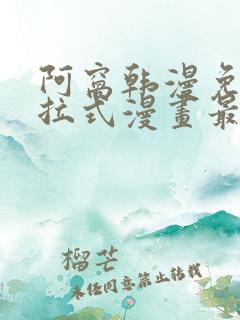 阿窩韩漫免
拉式漫畫最
榴芒
未经同意禁止转载